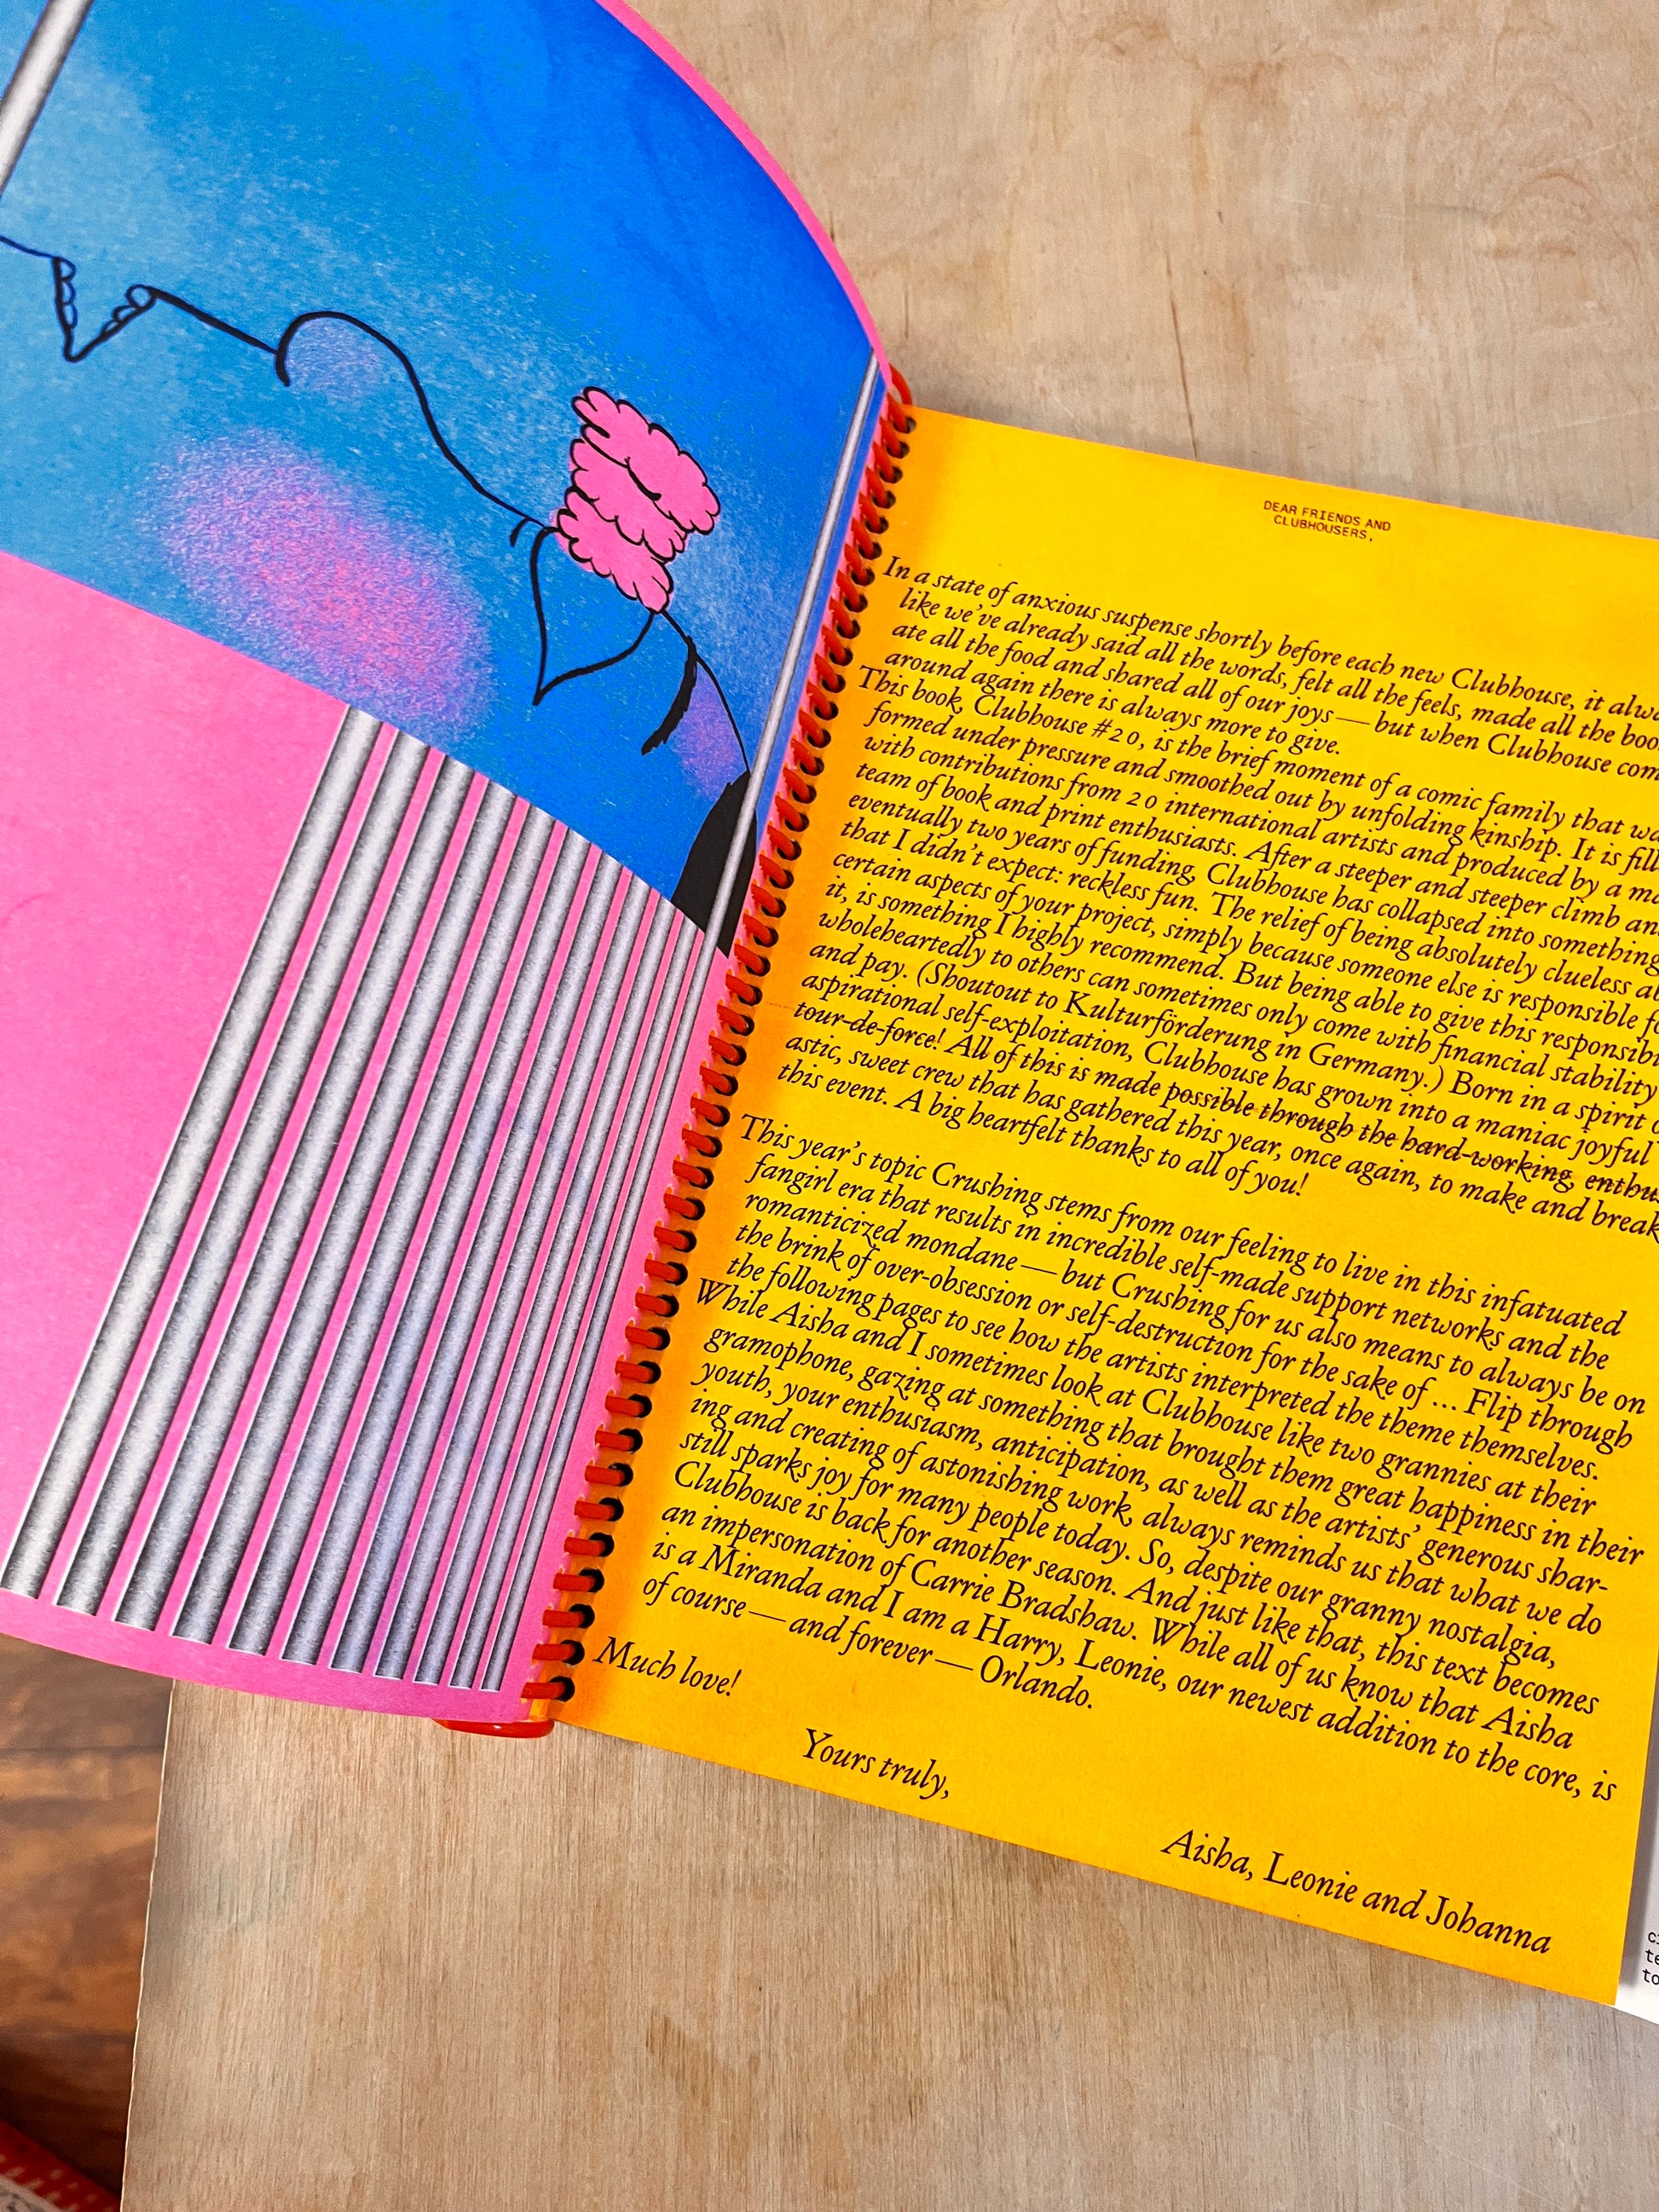 DEAR FRIENDS AND
CLUBHOUSERS,
In a state of anxious suspense shortly before each new Clubhouse, it alwa
like we've already said all the words, felt all the feels, made all the boo
ate all the food and shared all of our joys — but when Clubhouse com
around again there is always more to give.
This book, Clubhouse #20, is the brief moment of a comic family that wa
formed under pressure and smoothed out by unfolding kinship. It is fill
with contributions from 20 international artists and produced by a ma
team of book and print enthusiasts. After a steeper and steeper climb an
eventually two years of funding, Clubhouse has collapsed into something
that I didn't expect: reckless fun. The relief of being absolutely clueless ab
certain aspects of your project, simply because someone else is responsible fo
it, is something I highly recommend. But being able to give this responsibi
wholeheartedly to others can sometimes only come with financial stability
and pay. (Shoutout to Kulturförderung in Germany.) Born in a spirit o
aspirational self-exploitation, Clubhouse has grown into a maniac joyful
tour-de-force! All of this is made possible through the hard-working, enthus
astic, sweet crew that has gathered this year, once again, to make and break
this event. A big heartfelt thanks to all of you!
This year's topic Crushing stems from our feeling to live in this infatuated
fangirl era that results in incredible self-made support networks and the
romanticized mondane — but Crushing for us also means to always be on
the brink of over-obsession or self-destruction for the sake of ... Flip through
the following pages to see how the artists interpreted the theme themselves.
While Aisha and I sometimes look at Clubhouse like two grannies at their
gramophone, gazing at something that brought them great happiness in their
youth, your enthusiasm, anticipation, as well as the artists' generous shar-
ing and creating of astonishing work, always reminds us that what we do
still sparks joy for many people today. So, despite our granny nostalgia,
Clubhouse is back for another season. And just like that, this text becomes
an impersonation of Carrie Bradshaw. While all of us know that Aisha
is a Miranda and I am a Harry, Leonie, our newest addition to the core, is
of course — and forever — Orlando.
Much love!
Yours truly,
Aisha, Leonie and Johanna